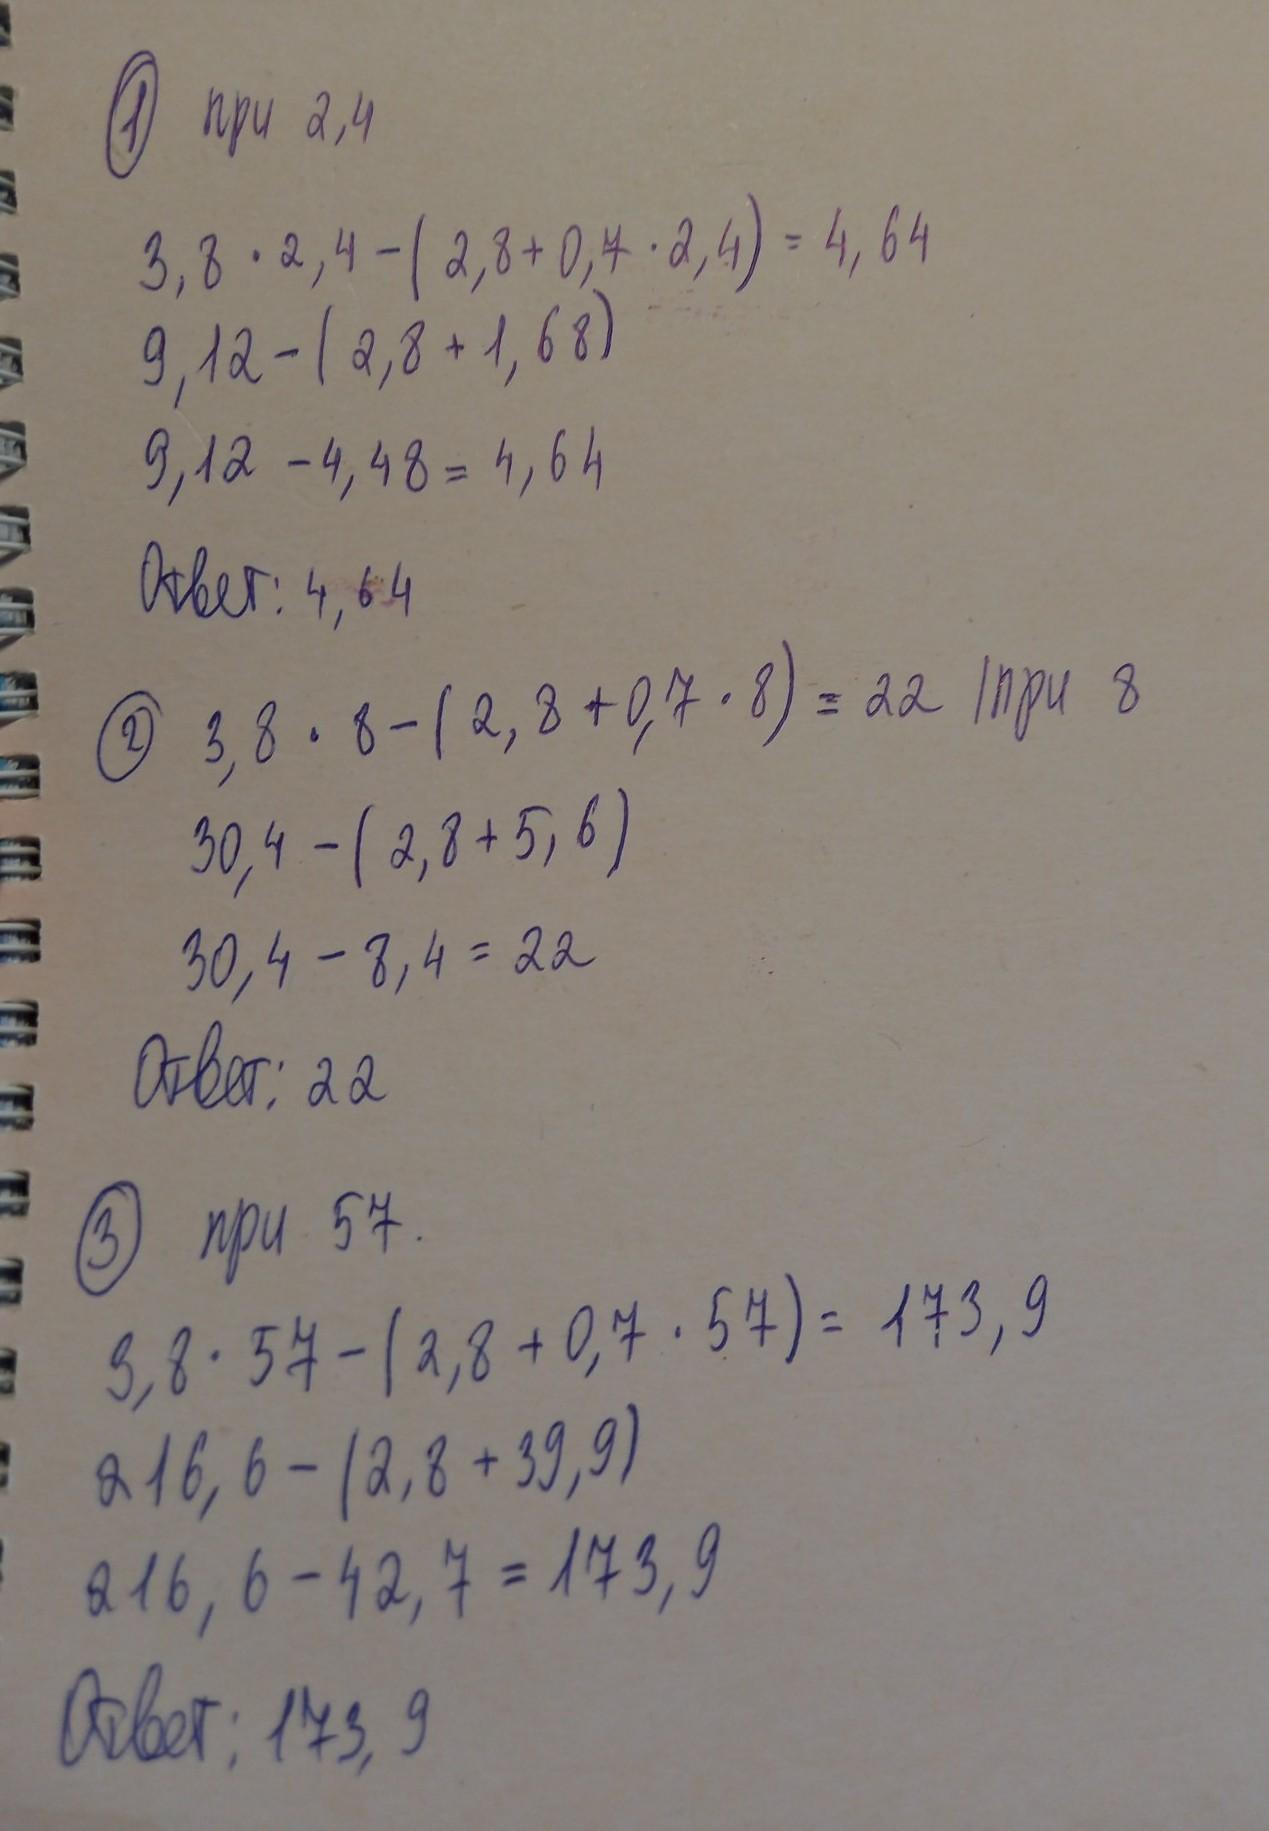 1 при 2,4
3,8 · 2,4 - (2,8 + 0,7 · 2,4) = 4,64
9,12 - (2,8 + 1,68)
9,12 - 4,48 = 4,64
Ответ: 4,64
2 3,8 · 8 - (2,8 + 0,7 · 8) = 22 | при 8
30,4 - (2,8 + 5,6)
30,4 - 8,4 = 22
Ответ: 22
3 при 57.
3,8 · 57 - (2,8 + 0,7 · 57) = 173,9
216,6 - (2,8 + 39,9)
216,6 - 42,7 = 173,9
Ответ: 173,9